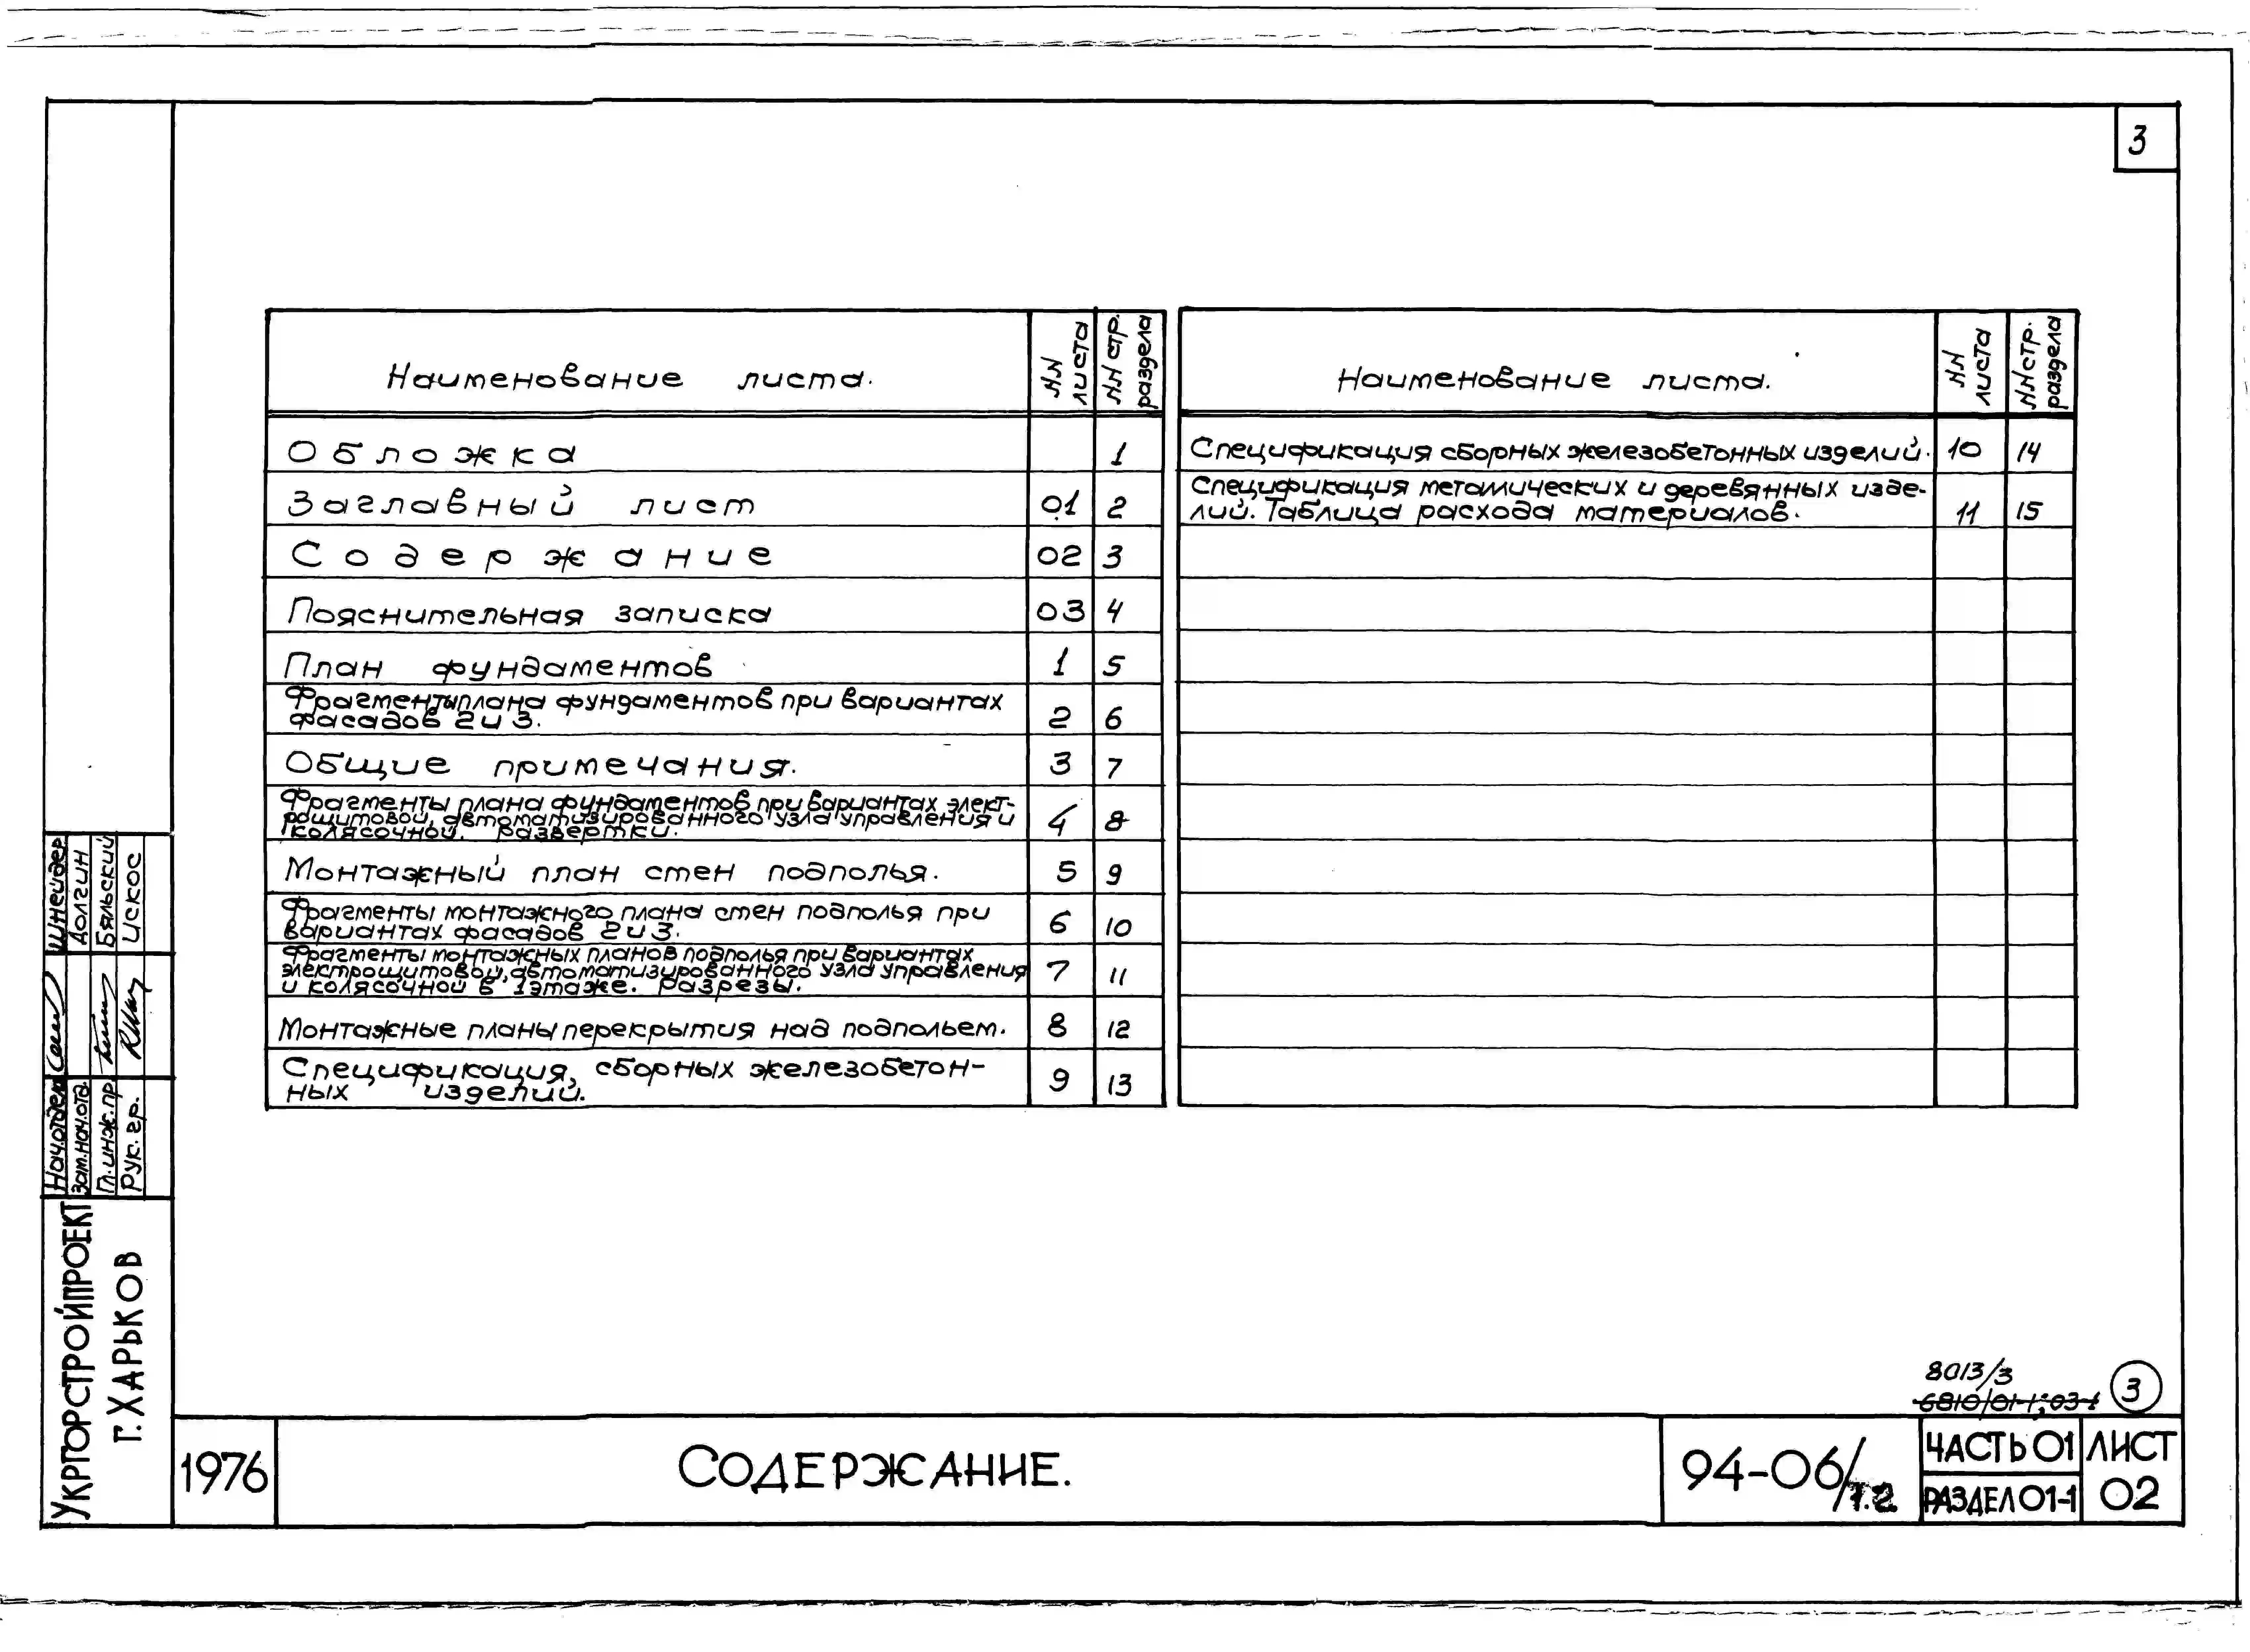 3
Наименование листа.
NN листа
NN стр. раздела
Обложка 1
Заглавный лист 01 2
Содержание 02 3
Пояснительная записка 03 4
План фундаментов 1 5
Фрагменты плана фундаментов при вариантах
фасадов 2 и 3. 2 6
Общие примечания. 3 7
Фрагменты плана фундаментов при вариантах элект-
рощитовой, автоматизированного узла управления и
колясочной. Развертки. 4 8
Монтажный план стен подполья. 5 9
Фрагменты монтажного плана стен подполья при
вариантах фасадов 2 и 3. 6 10
Фрагменты монтажных планов подполья при вариантах
электрощитовой, автоматизированного узла управления
и колясочной в 1 этаже. Разрезы. 7 11
Монтажные планы перекрытия над подпольем. 8 12
Спецификация, сборных железобетон-
ных изделий. 9 13
Наименование листа.
NN листа
NN стр. раздела
Спецификация сборных железобетонных изделий. 10 14
Спецификация металлических и деревянных изде-
лий. Таблица расхода материалов. 11 15
Нач.отдела Шнейдер
Зам.нач.отд. Долгин
Гл.инж.пр. Бяльский
Рук.гр. Искос
Укргорстройпроект
г.Харьков
8013/3
6810/01-1;03-1
3
1976
Содержание.
94-06/т.2
Часть 01
Раздел 01-1
Лист
02